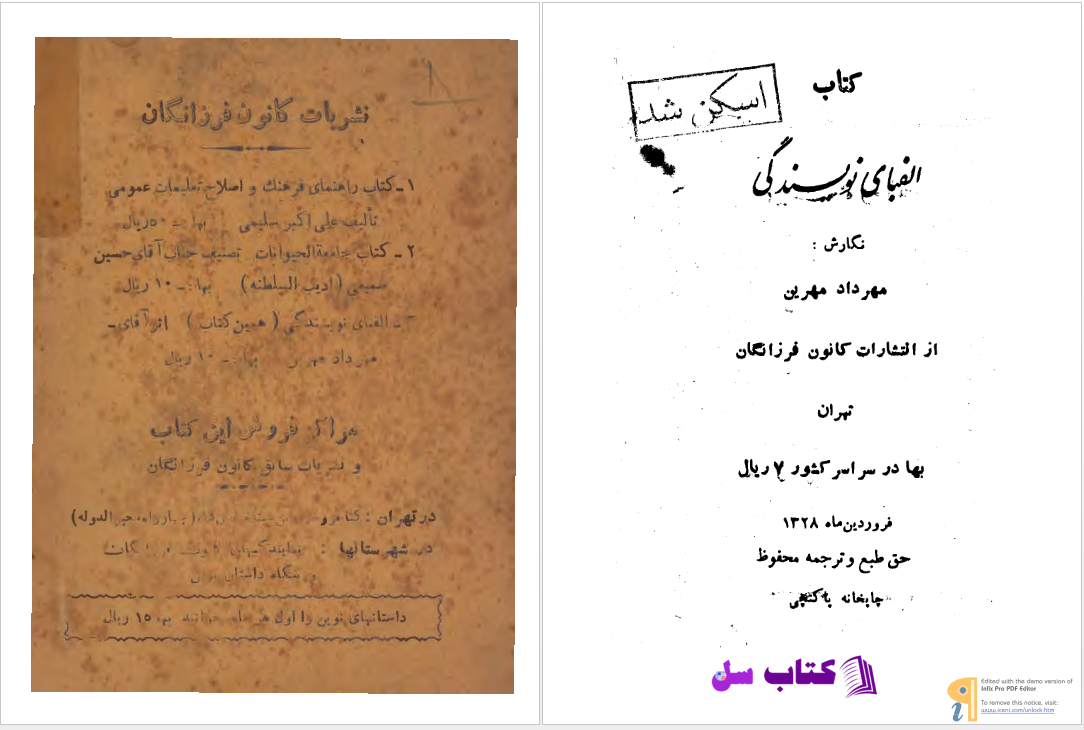 نشریات کانون فرزانگان
۱ـ کتاب راهنمای فرهنك و اصلاح تعلیمات عمومی
تألیف علی اکبر سلیمی بها ـ ۵۰ ریال
۲ ـ کتاب جامعةالحیوانات تصنیف جناب آقای حسین
سمیعی (ادیب السلطنه) بها ـ ۱۰ ریال
ـ الفبای نویسندگی (همین کتاب) اثر آقای ـ
مهرداد مهرین بها ـ ۱۰ ریال
مراکز فروش این کتاب
و نشریات سابق کانون فرزانگان
در تهران :
در شهرستانها :
بنگاه داستان
داستانهای نوین را اول هر ماه بها ۱۵ ریال
کتاب
اسکن شد
الفبای نویسندگی
نگارش :
مهرداد مهرین
از انتشارات کانون فرزانگان
تهران
بها در سراسر کشور ۷ ریال
فروردین ماه ۱۳۲۸
حق طبع و ترجمه محفوظ
چاپخانه
کتاب سل
Edited with the demo version of
Infix Pro PDF Editor
To remove this notice, visit:
www.iceni.com/unlock.htm